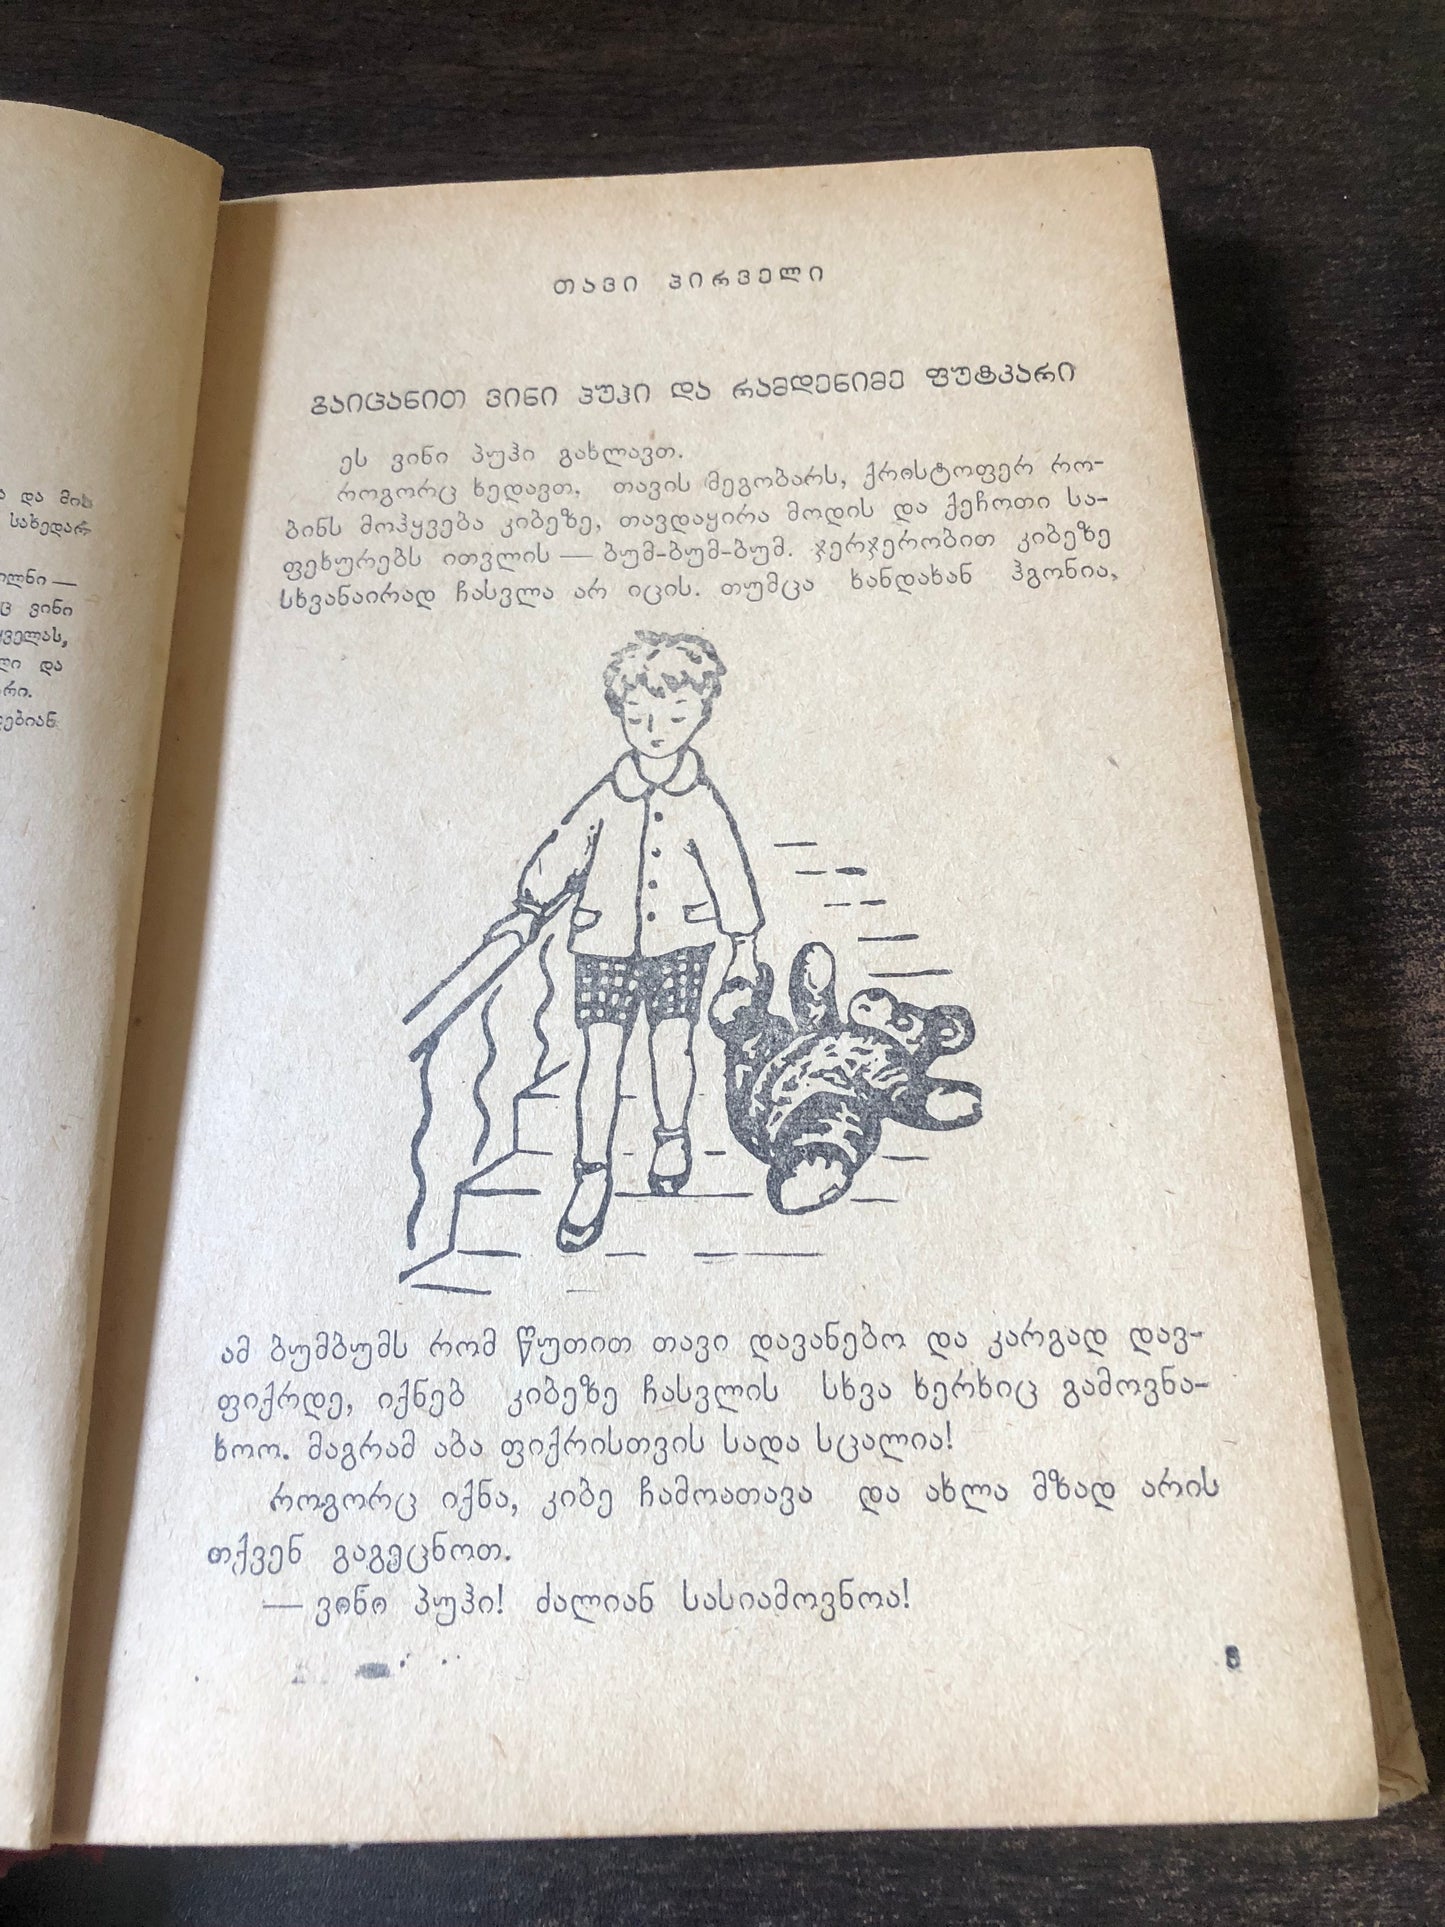 ა და მის
სახედარ
ილნი —
ც ვინი
ყველას,
ლი და
არი.
დებიან
თავი პირველი
გაიცანით ვინი პუჰი და რამდენიმე ფუტკარი
ეს ვინი პუჰი გახლავთ.
როგორც ხედავთ, თავის მეგობარს, ქრისტოფერ რო-
ბინს მოჰყვება კიბეზე, თავდაყირა მოდის და ქეჩოთი სა-
ფეხურებს ითვლის — ბუმ-ბუმ-ბუმ. ჯერჯერობით კიბეზე
სხვანაირად ჩასვლა არ იცის. თუმცა ხანდახან ჰგონია,
ამ ბუმბუმს რომ წუთით თავი დავანებო და კარგად დავ-
ფიქრდე, იქნებ კიბეზე ჩასვლის სხვა ხერხიც გამოვნა-
ხოო. მაგრამ აბა ფიქრისთვის სადა სცალია!
როგორც იქნა, კიბე ჩამოათავა და ახლა მზად არის
თქვენ გაგეცნოთ.
— ვინი პუჰი! ძალიან სასიამოვნოა!